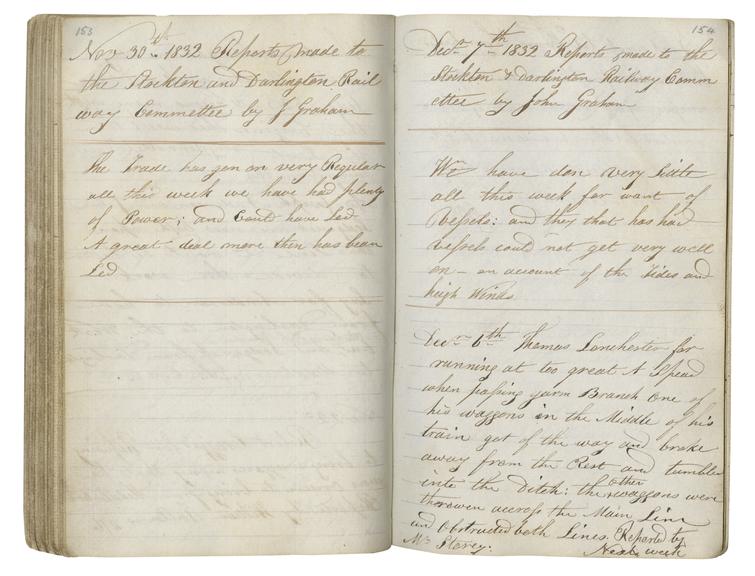 153
Nov 30th 1832 Reports made to
the Stockton and Darlington Rail
way Committee by J Graham
The Trade has gon on very Regular
all this week we have had plenty
of Power; and Could have Led
A great deal more then has bean
Led
154
Decr 7th 1832 Reports made to the
Stockton & Darlington Railway Comm
ettee by John Graham
We have don very little
all this week for want of
Vessels: and they that has had
Vessels could not get very well
on – on account of the Tides and
heigh Winds.
Decr 6th Thomas Lanchester for
running at too great A Spead
when passing yarm Branch one of
his waggons in the Middle of his
train got of the way and broke
away from the Rest and tumbled
into the Ditch: the other waggons were
throwen accross the Main Line
and Obstructed both Lines. Reported by
Mr Storey. Next week